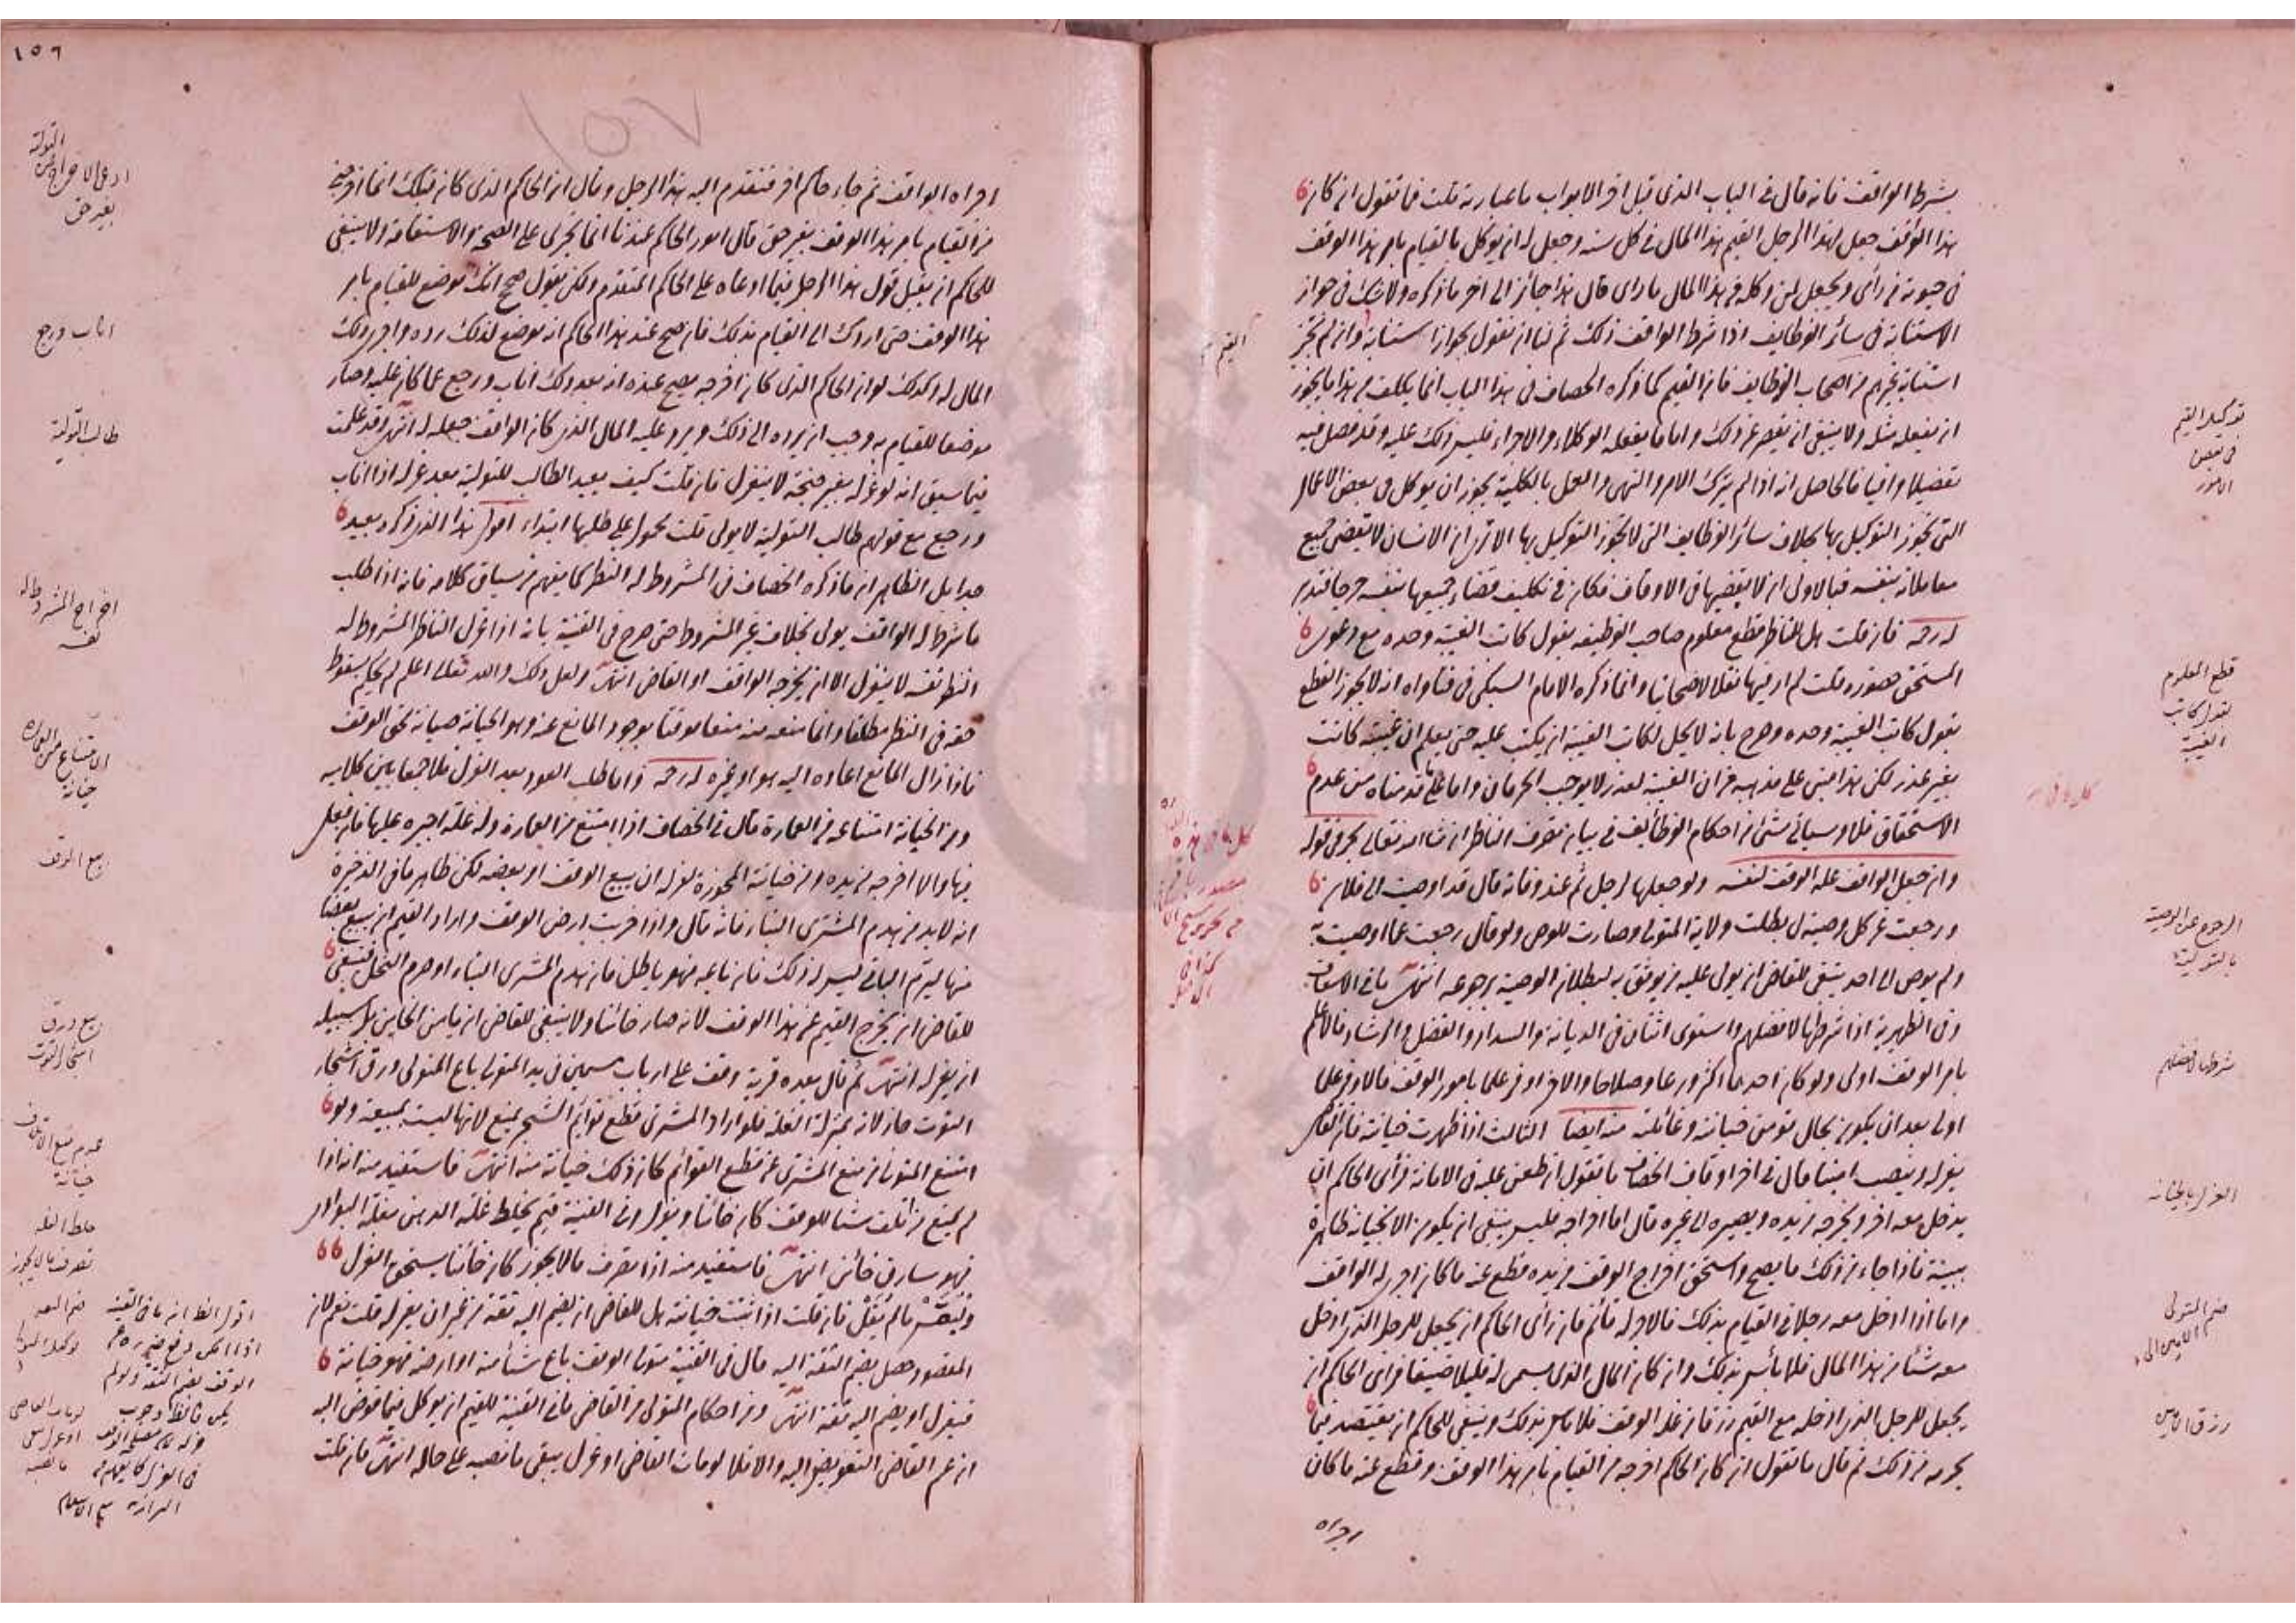 بشرط الواقف فانه قال في الباب الذي قبل اخر الابواب ما عبارته قلت فما تقول ان كان
هذا الواقف جعل لهذا الرجل القيم هذا المال في كل سنة وجعل له ان يوكل بالقيام بامر هذا الوقف
في حيوته من رأى ويجعل لمن وكله من هذا المال ما راى قال هذا جائز الى اخر ما ذكره ولا شك في جواز
الاستنابة في سائر الوظايف اذا شرط الواقف ذلك ثم لنا ان نقول بجواز استنابة وان لم تجز
استنابة غيرهم من اصحاب الوظايف فان القيم كما ذكره الخصاف في هذا الباب انما يكلف من هذا ما يجوز
ان يفعله مثله ولا ينبغي ان يقصر عن ذلك واما ما يفعله الوكلاء والاجراء فليس ذلك عليه وقد فصل فيه
تفصيلا وافيا فالحاصل انه اذا لم يترك الامر والنهي والعمل بالكلية يجوز ان يوكل في بعض الاعمال
التي يجوز التوكيل بها بخلاف سائر الوظايف التي لا يجوز التوكيل بها الا ترى ان الانسان لا يقضي جميع
معاملاته بنفسه فبالاولى ان لا يقضيها في الاوقاف فكان في تكليف قضاء جميعها بنفسه حرجا فتدبر
له رحمه فان قلت هل للناظر قطع معلوم صاحب الوظيفه بقول كاتب الغيبة وحده مع دعوى
المستحق حضوره قلت لم ار فيها نقلا لاصحابنا وانما ذكره الامام السبكي في فتاواه انه لا يجوز القطع
بقول كاتب الغيبة وحده وصرح بانه لا يحل لكاتب الغيبة ان يكتب عليه حتى يعلم ان غيبته كانت
بغير عذر لكن هذا مبني على مذهبه من ان الغيبة لعذر لا يوجب الحرمان واما على ما قدمناه من عدم
الاستحقاق فلا وسياتي شئ من احكام الوظائف في بيان تصرف الناظر ان شاء الله تعالى بحر في قوله
وان جعل الواقف غلة الوقف لنفسه ولو جعلها لرجل ثم عند وفاته قال قد اوصيت الى فلان
ورجعت عن كل وصية لي بطلت ولاية المتولي وصارت للوصي ولو قال رجعت عما اوصيت به
ولم يوص الى احد ينبغي للقاضي ان يولي عليه من يوثق به لبطلان الوصية برجوعه انتهى ما في الاسعاف
وفي الظهيرية اذا شرطها لافضلهم واستوى اثنان في الديانة والسداد والفضل والرشاد فالاعلم
بامر الوقف اولى ولو كان احدهما اكثر ورعا وصلاحا والاخر اوفر علما بامور الوقف فالاوفر علما
اولى بعد ان يكون بحال تؤمن خيانته وغائلته منه ايضا الثالث اذا ظهرت خيانته فان القاضي
يعزله وينصب امينا قال في اخر اوقاف الخصاف ما تقول ان طعن عليه في الامانة فرأى الحاكم ان
يدخل معه اخر او يخرجه من يده ويصيره الى غيره قال اما اخراجه فليس ينبغي ان يكون الا بخيانة ظاهرة
بينة فاذا جاء من ذلك ما يصح واستحق اخراج الوقف من يده قطع عنه ما كان اجرى له الواقف
واما اذا ادخل معه رجلا في القيام بذلك فالاجر له قائم فان رأى الحاكم ان يجعل للرجل الذي ادخل
معه شيئا من هذا المال فلا باس بذلك وان كان المال الذي سمى له قليلا ضيقا فراى الحاكم ان
يجعل للرجل الذي ادخله مع القيم رزقا من غلة الوقف فلا باس بذلك وينبغي للحاكم ان يقتصد فيما
يجريه من ذلك ثم قال ما تقول ان كان الحاكم اخرجه من القيام بامر هذا الوقف وقطع عنه ما كان
اجراه
القيم
توكيل القيم
في بعض
الامور
قطع المعلوم
بقول كاتب
الغيبة
الرجوع عن الوصية
بالتولية
شرطها لافضلهم
العزل بالخيانة
ضم المتولي
رزق الامين
١٥٦
١٥٧
اجراه الواقف ثم جاء حاكم اخر فتقدم اليه هذا الرجل وقال ان الحاكم الذي كان قبلك انما اخرجني
من القيام بامر هذا الوقف بغير حق قال امور الحاكم عندنا انما تجري على الصحة والاستقامة ولا ينبغي
للحاكم ان يقبل قول هذا الرجل فيما ادعاه على الحاكم المتقدم ولكن يقول صحح انك موضع للقيام بامر
هذا الوقف حتى اردك الى القيام بذلك فان صح عند هذا الحاكم انه موضع لذلك رده واجرى ذلك
المال له وكذلك لو ان الحاكم الذي كان اخرجه صح عنده انه بعد ذلك اناب ورجع عما كان عليه وصار
موضعا للقيام به وجب ان يرده الى ذلك ويرد عليه المال الذي كان الواقف جعله له انتهى وقد علمت
فيما سبق انه لو عزله بغير جنحة لا ينعزل فان قلت كيف يعيد الطالب للتولية بعد عزله اذا اناب
ورجع مع قولهم طالب التولية لا يولى قلت محمول على طلبها ابتداء اقول هذا الذي ذكره بعيد
جدا بل الظاهر ان ما ذكره الخصاف في المشروط له النظر كما يفهم من سياق كلامه فانه اذا طلب
ما شرطه الواقف يولى بخلاف غير المشروط حتى صرح في القنية بانه اذا عزل الناظر المشروط له
النظر نفسه لا ينعزل الا ان يخرجه الواقف او القاضي انتهى ولعل ذلك والله تعالى اعلم لم يحكم بسقوط
حقه في النظر مطلقا وانما منعه منه منعا موقتا بوجود المانع عنه وهو الخيانة صيانة لحق الوقف
فاذا زال المانع اعاده اليه هو او غيره له رحمه واما طلب العود بعد العزل فلا جمعا بين كلاميه
ومن الخيانة امتناعه من العمارة قال في الخصاف اذا امتنع من العمارة وله غلة اجبره عليها فان فعل
فبها والا اخرجه من يده ومن خيانته المجوزة لعزله ان يبيع الوقف او بعضه لكن ظاهر ما في الذخيرة
انه لابد من هدم المشتري البناء فانه قال واذا خربت ارض الوقف واراد القيم ان يبيع بعضا
منها ليرم الباقي ليس له ذلك فان باعه فهو باطل فان هدم المشتري البناء او صرم النخل فينبغي
للقاضي ان يخرج القيم عن هذا الوقف لانه صار خائنا ولا ينبغي للقاضي ان يامن الخاين بل سبيله
ان يعزله انتهى ثم قال بعده قرية وقف على ارباب مسمين في يد المتولي باع المتولي ورق اشجار
التوت جاز لانه بمنزلة الغلة فلو اراد المشتري قطع قوائم الشجر يمنع لانها ليست بمبيعة ولو
امتنع المتولي من منع المشتري عن قطع القوائم كان ذلك خيانة منه انتهى فاستفيد منه انه اذا
لم يمنع من اتلف شيئا للوقف كان خائنا ويعزل وفي القنية قيم يخلط غلة الدهن بغلة البواري
فهو سارق خائن انتهى فاستفيد منه اذا تصرف بما لا يجوز كان خائنا يستحق العزل
وليقس ما لم يقل فان قلت اذا ثبتت خيانته هل للقاضي ان يضم اليه ثقة من غير ان يعزله قلت نعم لان
المقصود حصل بضم الثقة اليه قال في القنية متولي الوقف باع شيئا منه او ارهنه فهو خيانة
فيعزل او يضم اليه ثقة انتهى ومن احكام المتولي من القاضي ما في القنية للقيم ان يوكل فيما فوض اليه
ان عمم القاضي التفويض اليه والا فلا لو مات القاضي او عزل يبقى ما نصبه على حاله انتهى فان قلت
التولية
ادعى الاخراج من
بغير حق
اناب ورجع
طالب التولية
اخراج المشروط له
نفسه
الامتناع من العمارة
خيانة
بيع الوقف
بيع ورق
اشجار التوت
عدم منع الاتلاف
خيانة
خلط الغلة
تصرف بما لا يجوز